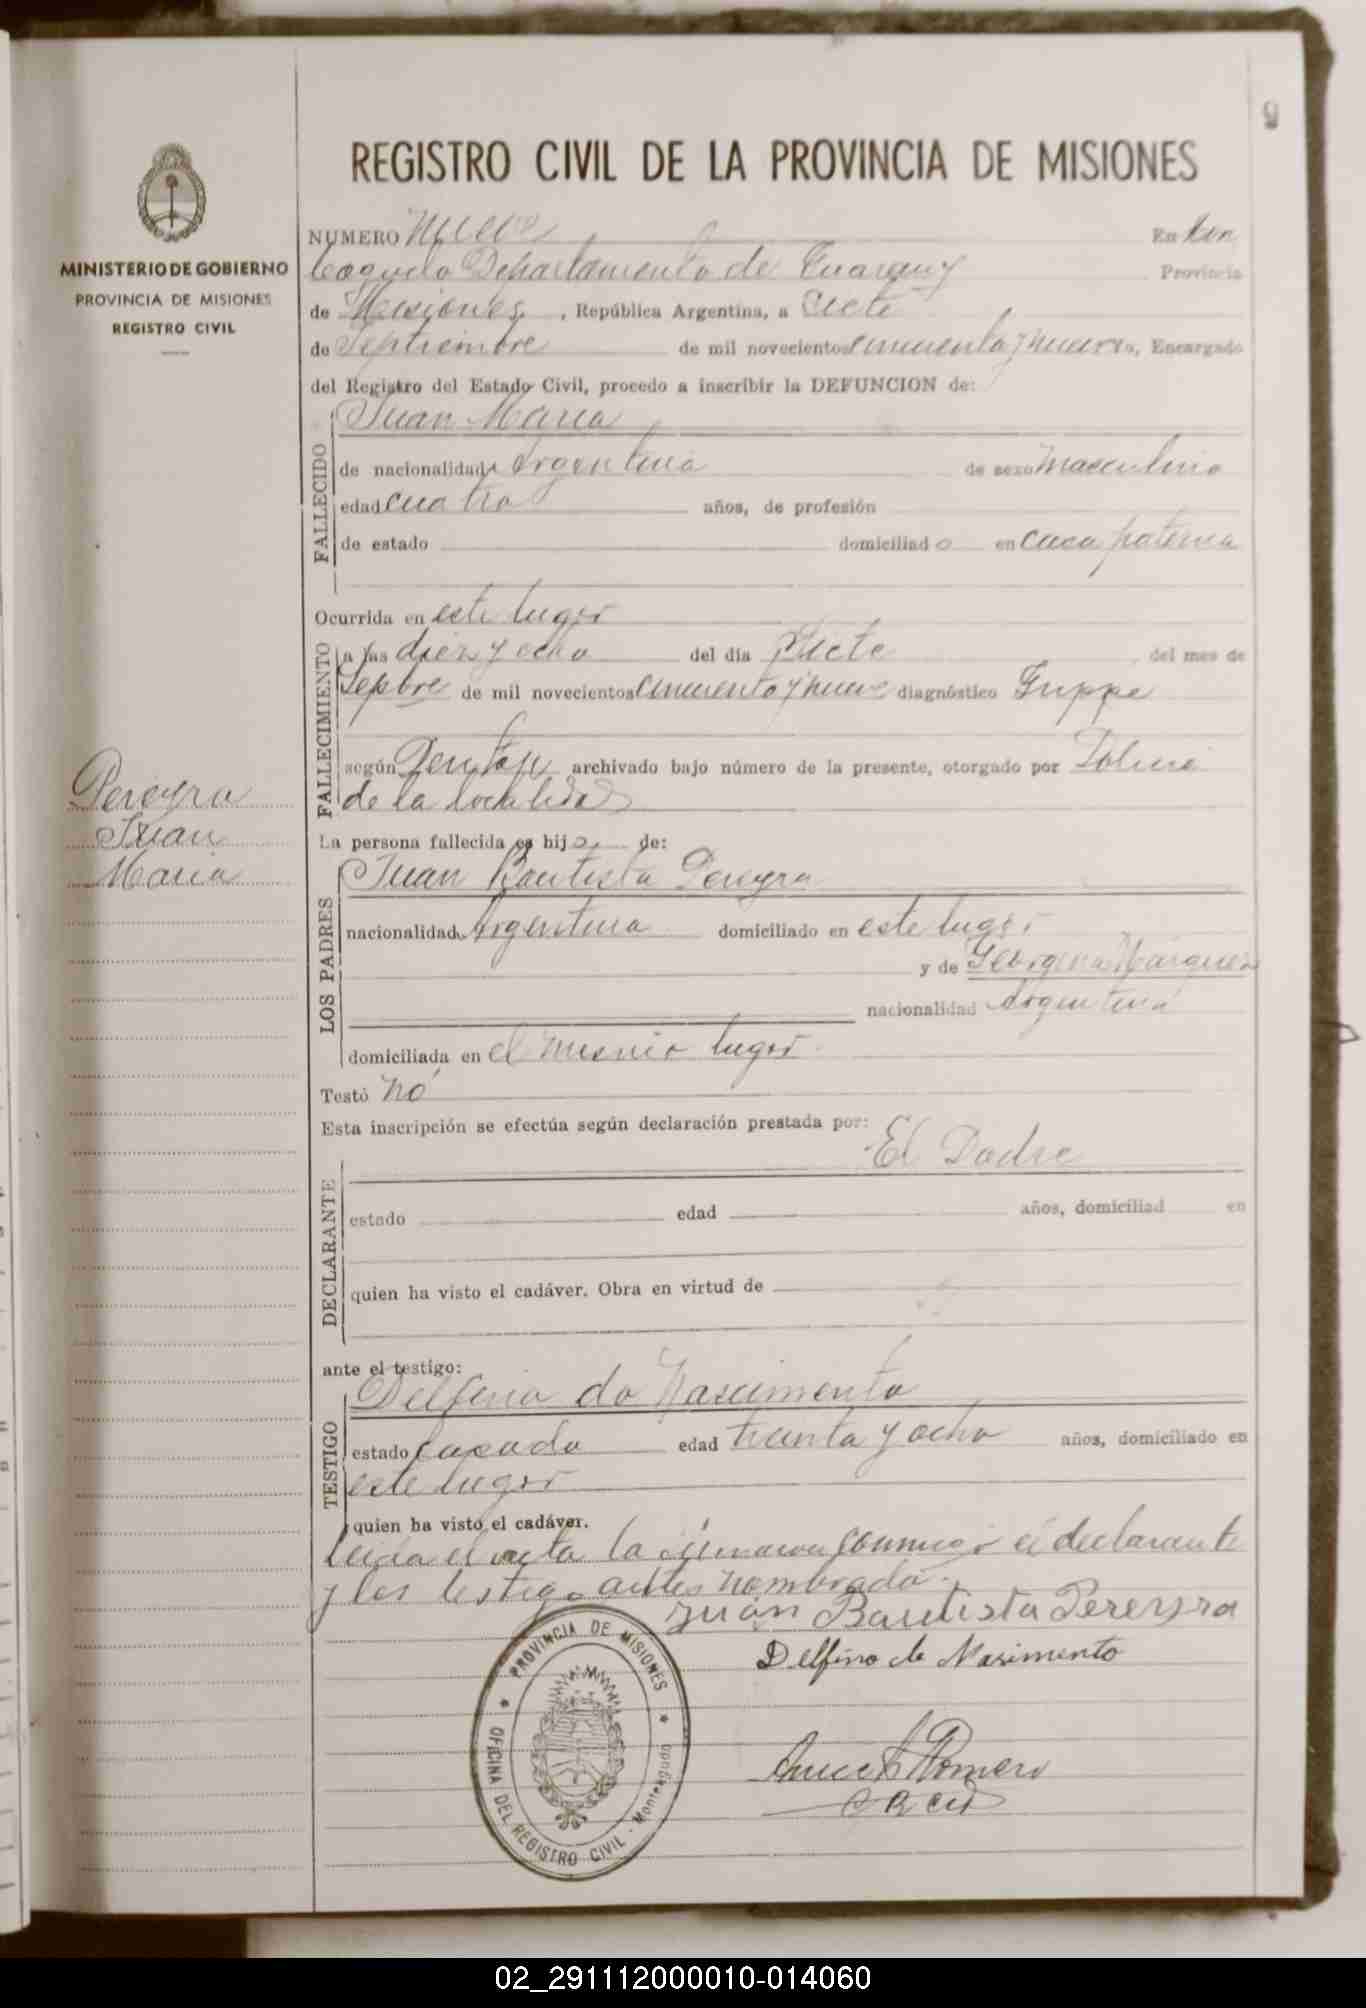 9
REGISTRO CIVIL DE LA PROVINCIA DE MISIONES
MINISTERIO DE GOBIERNO
PROVINCIA DE MISIONES
REGISTRO CIVIL
NUMERO Nueve En Mon
teagudo Departamento de Guarany Provincia
de Misiones, República Argentina, a Ciete
de Septiembre de mil novecientos cincuenta y nueve, Encargado
del Registro del Estado Civil, procedo a inscribir la DEFUNCION de:
FALLECIDO
Juan Maria
de nacionalidad Argentina de sexo masculino
edad cuatro años, de profesión
de estado domiciliado en casa paterna
Ocurrida en este lugar
FALLECIMIENTO
a las diez y ocho del día Ciete del mes de
Sepbre de mil novecientos cincuenta y nueve diagnóstico Grippe
según archivado bajo número de la presente, otorgado por Policia
de la localidad
Pereyra
Juan
Maria
La persona fallecida es hijo de:
LOS PADRES
Juan Bautista Pereyra
nacionalidad Argentina domiciliado en este lugar
y de Georgena Márquez
nacionalidad Argentina
domiciliada en el mismo lugar
Testó no
Esta inscripción se efectúa según declaración prestada por:
El Padre
DECLARANTE
estado edad años, domiciliad en
quien ha visto el cadáver. Obra en virtud de
ante el testigo:
TESTIGO
Delfino do Nascimento
estado casado edad treinta y ocho años, domiciliado en
este lugar
quien ha visto el cadáver.
Leida el acta la firmaron conmigo el declarante
y los testigo antes nombrado.
Juan Bautista Perersra
Delfino do Nasimento
Romero
PROVINCIA DE MISIONES
OFICINA DEL REGISTRO CIVIL - Monteagudo
02_291112000010-014060